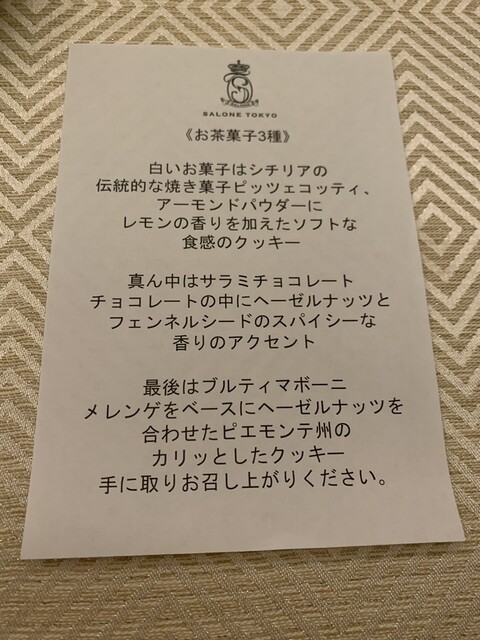 SALONE TOKYO
《お茶菓子3種》
白いお菓子はシチリアの
伝統的な焼き菓子ピッツェコッティ、
アーモンドパウダーに
レモンの香りを加えたソフトな
食感のクッキー
真ん中はサラミチョコレート
チョコレートの中にヘーゼルナッツと
フェンネルシードのスパイシーな
香りのアクセント
最後はブルティマボーニ
メレンゲをベースにヘーゼルナッツを
合わせたピエモンテ州の
カリッとしたクッキー
手に取りお召し上がりください。